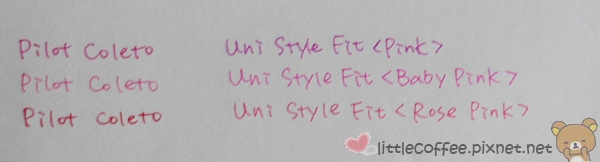 Pilot Coleto Uni Style Fit <Pink>
Pilot Coleto Uni Style Fit <Baby Pink>
Pilot Coleto Uni Style Fit <Rose Pink>
littleCoffee.pixnet.net